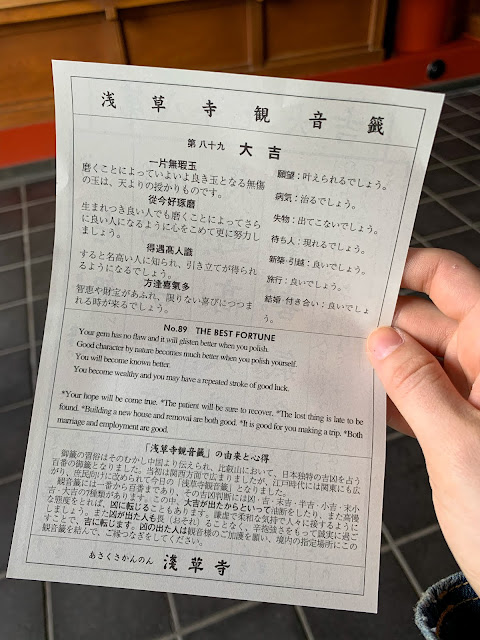 浅草寺観音籤
第八十九 大吉
一片無瑕玉
磨くことによっていよいよ良き玉となる無傷
の玉は、天よりの授かりものです。
從今好琢磨
生まれつき良い人でも磨くことによってさら
に良い人になるように心をこめて更に努力し
ましょう。
得遇高人識
すると名高い人に知られ、引き立てが得られ
るようになるでしょう。
方逢喜氣多
智恵や財宝があふれ、限りない喜びにつつま
れる時が来るでしょう。
願望：叶えられるでしょう。
病気：治るでしょう。
失物：出てこないでしょう。
待ち人：現れるでしょう。
新築・引越：良いでしょう。
旅行：良いでしょう。
結婚・付き合い：良いでしょ
う。
No.89 THE BEST FORTUNE
Your gem has no flaw and it will glisten better when you polish.
Good character by nature becomes much better when you polish yourself.
You will become known better.
You become wealthy and you may have a repeated stroke of good luck.
*Your hope will be come true. *The patient will be sure to recover. *The lost thing is late to be
found. *Building a new house and removal are both good. *It is good for you making a trip. *Both
marriage and employment are good.
「浅草寺観音籤」の由来と心得
御籤の習俗はそのむかし中国より伝えられ、比叡山において、日本独特の吉凶を占う
百番の御籤となりました。当初は関西方面で広まりましたが、江戸時代には関東にも広
がり、庶民向けに改められて今日の「浅草寺観音籤」となりました。
観音籤には一番から百番まであり、その吉凶判断には凶・吉・末吉・半吉・小吉・末小
吉・大吉の7種類があります。この中、大吉が出たからといって油断をしたり、また高慢
な態度をとれば、凶に転じることもあります。謙虚で柔和な気持で人々に接するように
しましょう。また凶が出た人も畏（おそれ）ることなく、辛抱強さをもって誠実に過ご
すことで、吉に転じます。凶の出た人は観音様のご加護を願い、境内の指定場所にこの
観音籤を結んで、ご縁つなぎをしてください。
あさくさかんのん 淺草寺